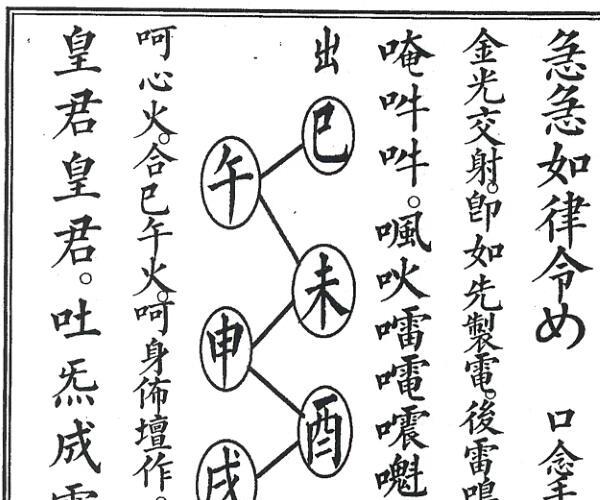 急急如律令め 口念手
金光交射。即如先製雷。後雷鳴
唵吽吽。㗔吙嚅𠹌㘈魁
出巳午未申酉戌
呵心火。合巳午火。呵身佈壇作。
皇君皇君。吐炁成雷